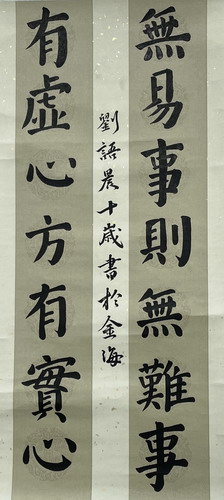 無易事則無難事
有虛心方有實心
劉語晨十歲書於金海